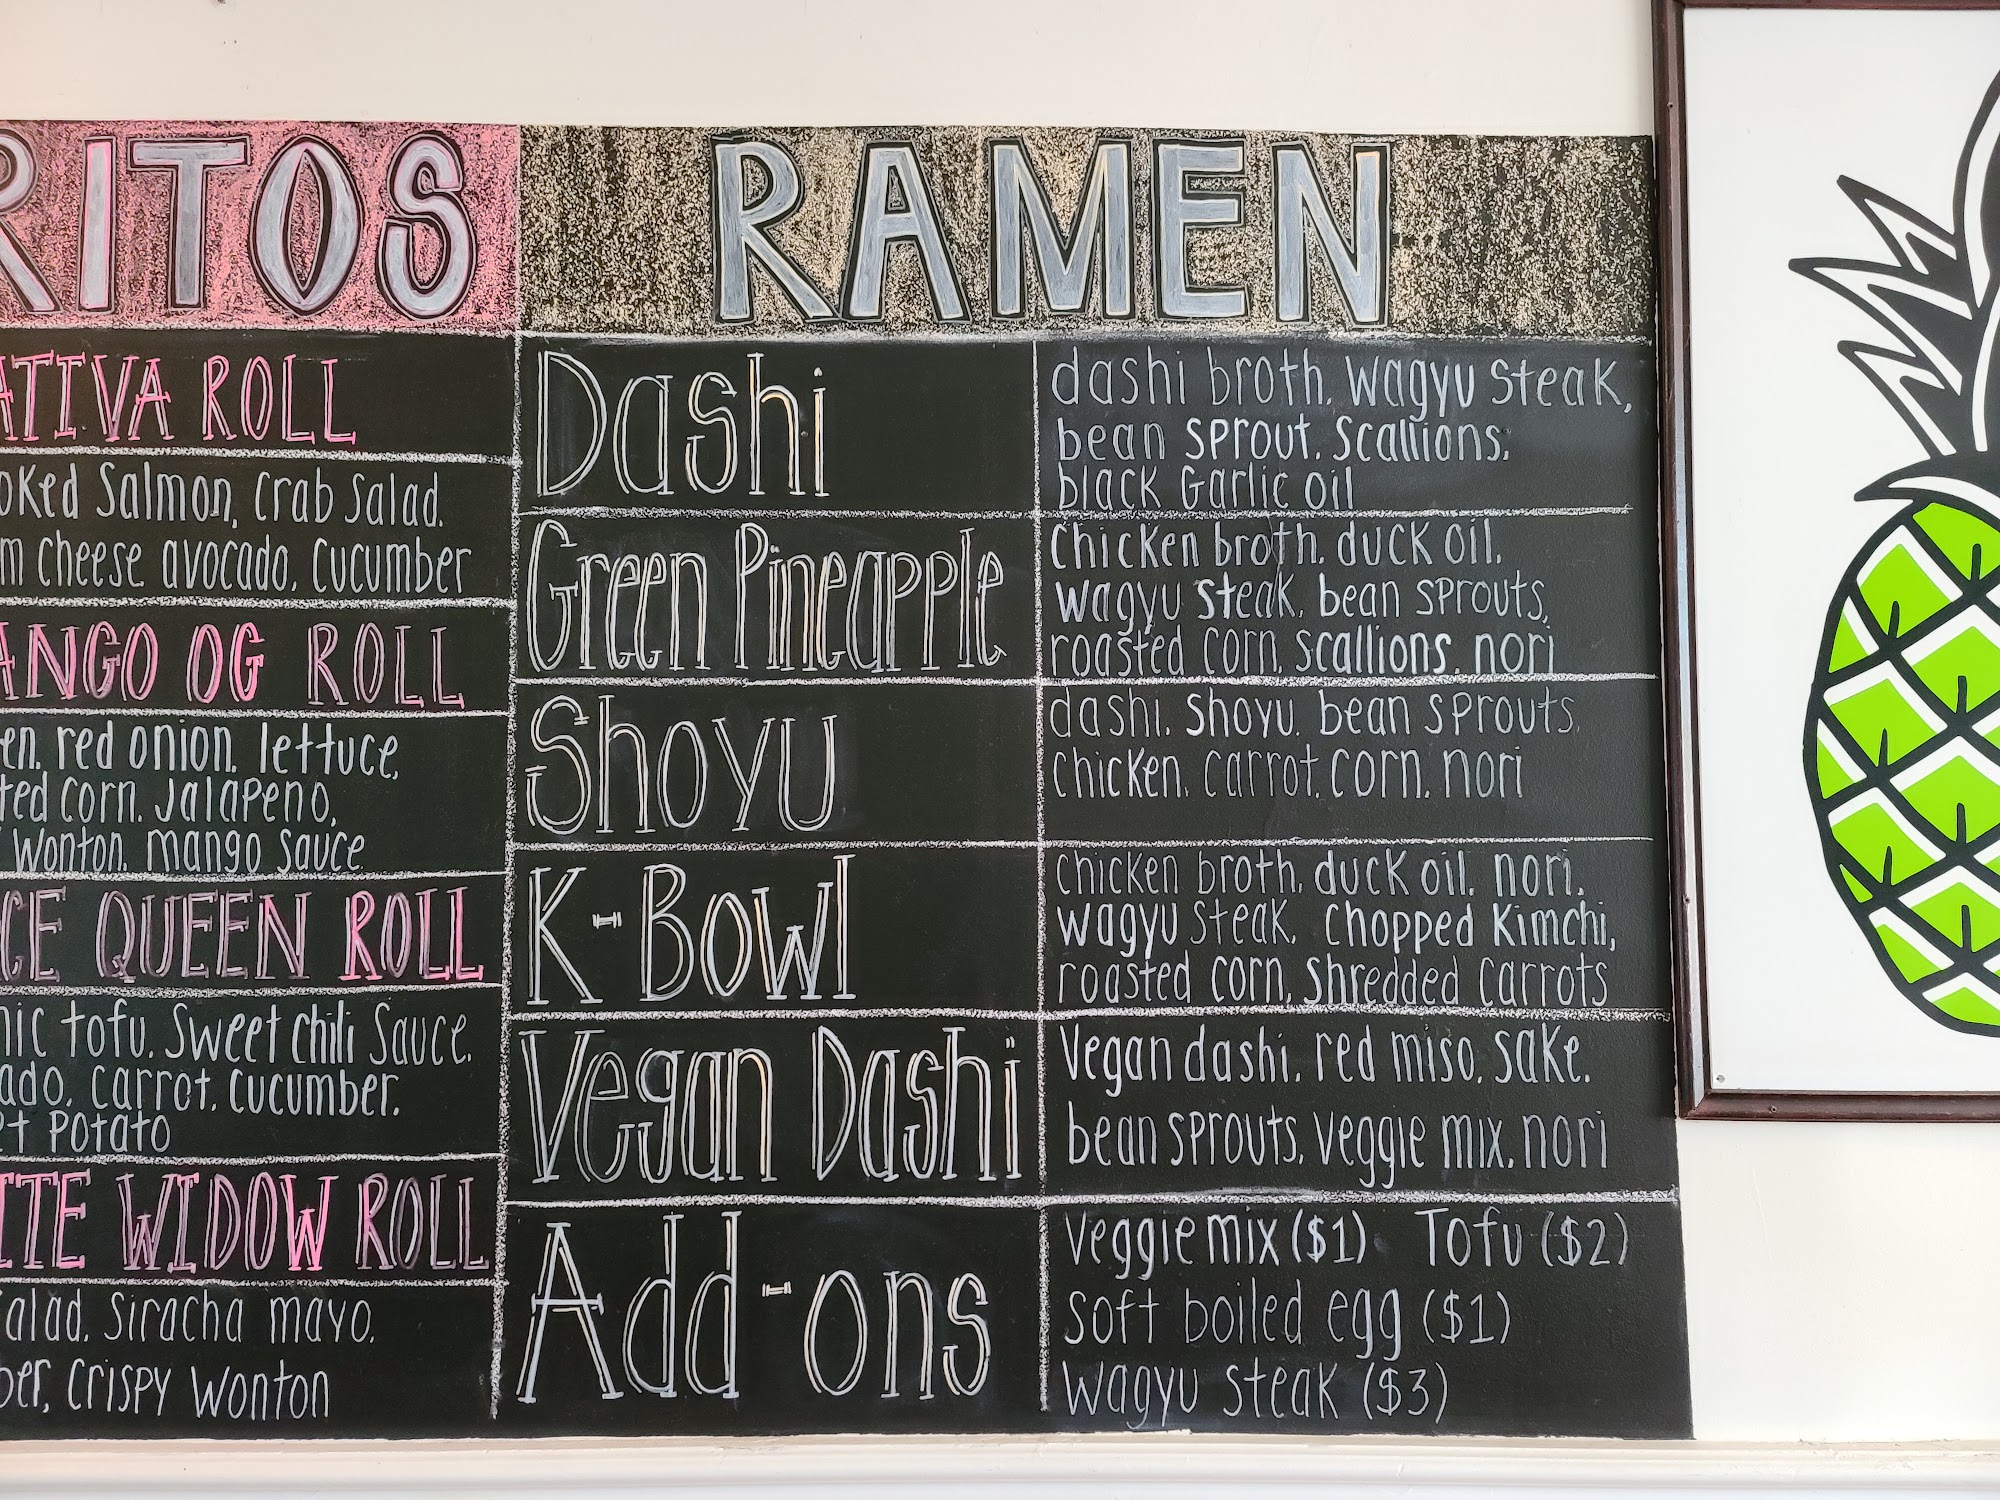 RITOS
ATIVA ROLL
oked Salmon, crab salad.
m cheese avocado, cucumber
ANGO OG ROLL
en. red onion. lettuce,
ted corn. Jalapeno,
Wonton. mango sauce.
CE QUEEN ROLL
nic tofu. Sweet chili Sauce.
ado, carrot. cucumber.
et Potato
ITE WIDOW ROLL
alad. Siracha mayo.
ber, Crispy Wonton
RAMEN
Dashi
dashi broth. Wagyu Steak,
bean sprout. Scallions.
black Garlic oil
Green Pineapple
Chicken broth. duck oil.
wagyu steak. bean sprouts,
roasted corn. scallions. nori
Shoyu
dashi. Shoyu. bean sprouts.
chicken. carrot. corn. nori
K-Bowl
chicken broth. duck oil. nori.
wagyu steak. chopped Kimchi,
roasted corn, shredded carrots
Vegan Dashi
Vegan dashi. red miso. sake.
bean sprouts. veggie mix. nori
Add-ons
Veggie mix ($1) Tofu ($2)
soft boiled egg ($1)
wagyu steak ($3)